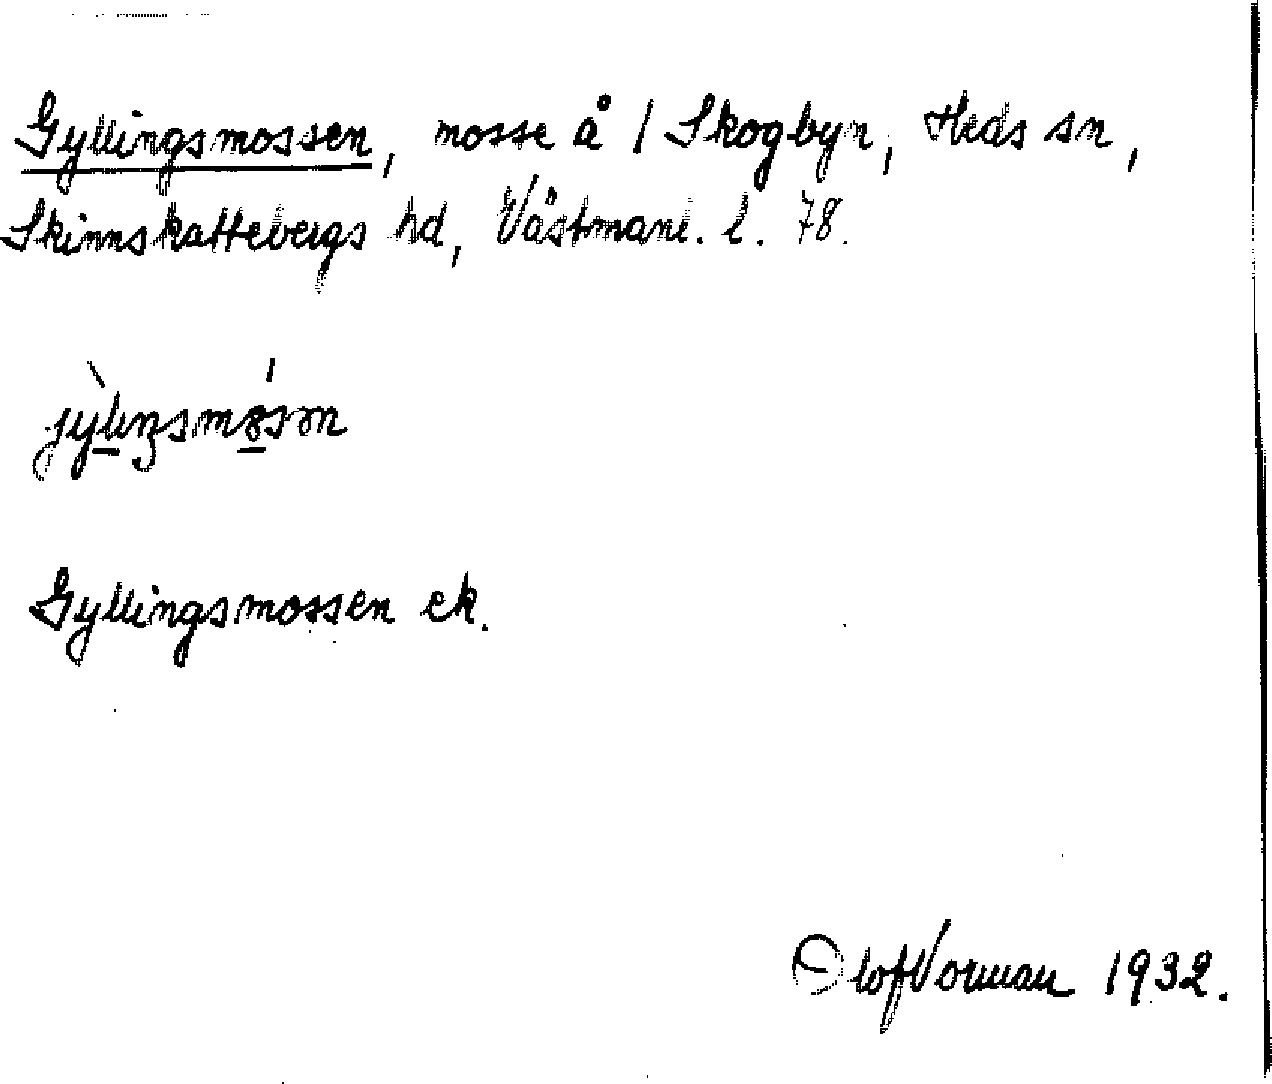 Gyllingsmossen, mosse å / Skogbyn, Heds sn,
Skinnskattebergs hd, Västmanl. l. 78.
jỳlıŋsmǿsən
Gyllingsmossen ek.
Olof Vorman 1932.